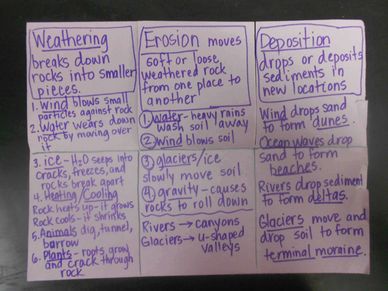 Weathering
breaks down
rocks into smaller
pieces.
1. Wind blows small
particles against rock
2. Water wears down
rock by moving over
it
3. ice - H2O seeps into
cracks, freezes, and
rocks break apart
4. Heating/Cooling
Rock heats up - it grows
Rock cools - it shrinks
5. Animals dig, tunnel,
barrow
6. Plants - roots grow
and crack through
rock
Erosion moves
soft or loose,
weathered rock
from one place to
another
1. water - heavy rains
wash soil away
2. wind blows soil
3. glaciers/ice
slowly move soil
4. gravity - causes
rocks to roll down
Rivers → canyons
Glaciers → U-shaped
valleys
Deposition
drops or deposits
sediments in
new locations
Wind drops sand
to form dunes.
Ocean waves drop
sand to form
beaches.
Rivers drop sediment
to form deltas.
Glaciers move and
drop soil to form
terminal moraine.